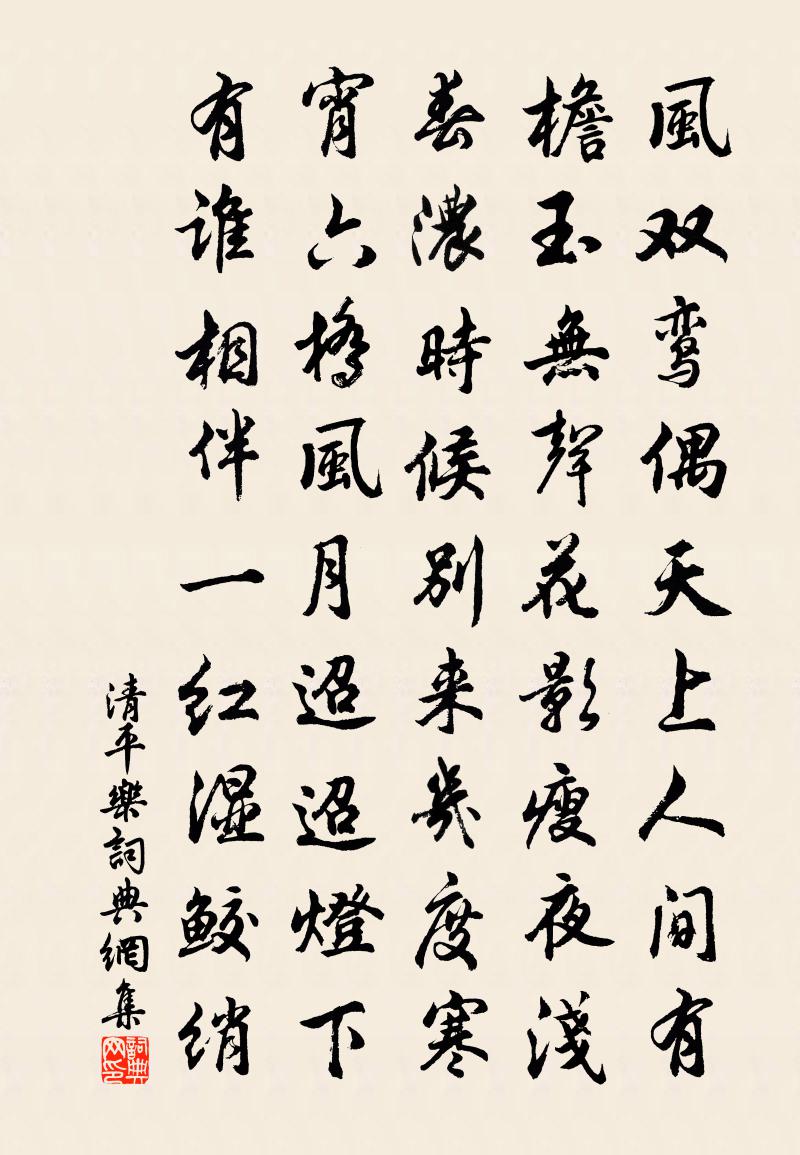 風双鸾偶天上人间有
檐玉無聲花影瘦夜淺
春濃時候別来幾度寒
宵六橋風月迢迢燈下
有谁相伴一红湿鲛绡
清平樂詞典網集
詞典网印